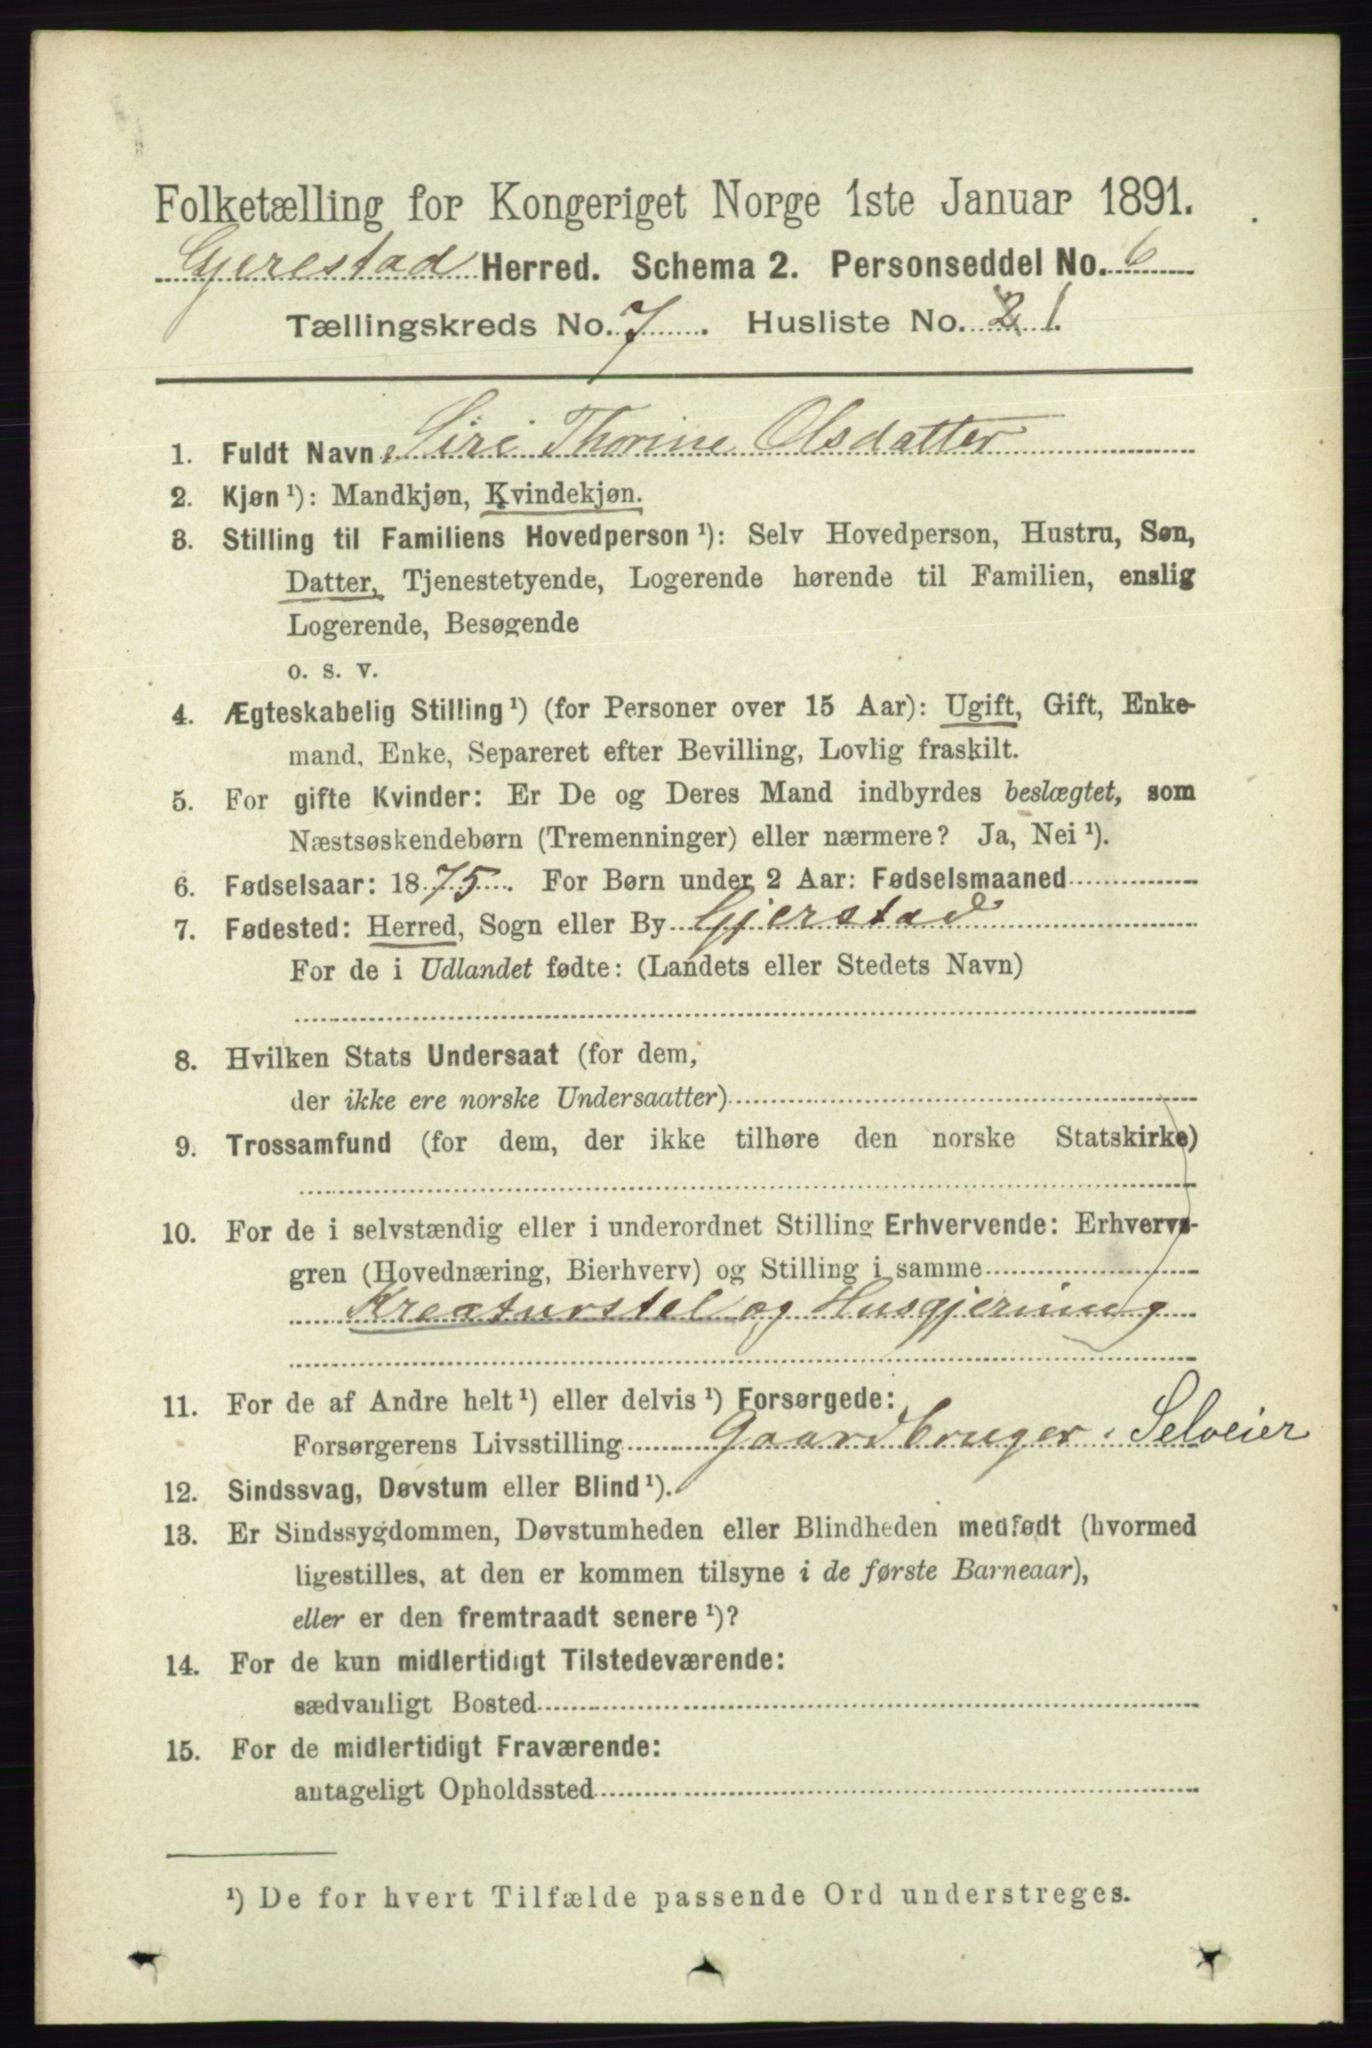 Folketælling for Kongeriget Norge 1ste Januar 1891.
Gjerestad Herred. Schema 2. Personseddel No. 6
Tællingskreds No. 7. Husliste No. 2 1.
1. Fuldt Navn Siri Thorine Olsdatter
2. Kjøn ¹): Mandkjøn, Kvindekjøn.
3. Stilling til Familiens Hovedperson ¹): Selv Hovedperson, Hustru, Søn,
Datter, Tjenestetyende, Logerende hørende til Familien, enslig
Logerende, Besøgende
o. s. v.
4. Ægteskabelig Stilling ¹) (for Personer over 15 Aar): Ugift, Gift, Enke-
mand, Enke, Separeret efter Bevilling, Lovlig fraskilt.
5. For gifte Kvinder: Er De og Deres Mand indbyrdes beslægtet, som
Næstsøskendebørn (Tremenninger) eller nærmere? Ja, Nei ¹).
6. Fødselsaar: 1875. For Børn under 2 Aar: Fødselsmaaned
7. Fødested: Herred, Sogn eller By Gjerstad
For de i Udlandet fødte: (Landets eller Stedets Navn)
8. Hvilken Stats Undersaat (for dem,
der ikke ere norske Undersaatter)
9. Trossamfund (for dem, der ikke tilhøre den norske Statskirke)
10. For de i selvstændig eller i underordnet Stilling Erhvervende: Erhvervs-
gren (Hovednæring, Bierhverv) og Stilling i samme
Kreaturstel og Husgjerning
11. For de af Andre helt ¹) eller delvis ¹) Forsørgede:
Forsørgerens Livsstilling Gaardbruger, Selveier
12. Sindssvag, Døvstum eller Blind ¹).
13. Er Sindssygdommen, Døvstumheden eller Blindheden medfødt (hvormed
ligestilles, at den er kommen tilsyne i de første Barneaar),
eller er den fremtraadt senere ¹)?
14. For de kun midlertidigt Tilstedeværende:
sædvanligt Bosted
15. For de midlertidigt Fraværende:
antageligt Opholdssted
¹) De for hvert Tilfælde passende Ord understreges.